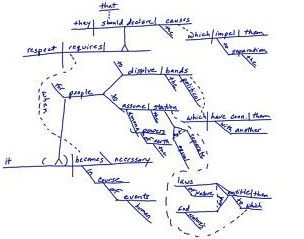 that
they should declare causes
the
which impel them
to
separation
the
respect requires
to
dissolve bands
the
political
of
people
when
to
assume station
the
among
powers
of
earth
the
separate
equal
which have conn. them
with
another
it ( ) becomes necessary
in
course
the
of
events
human
laws
of
nature
God
nature's
entitle them
to
which